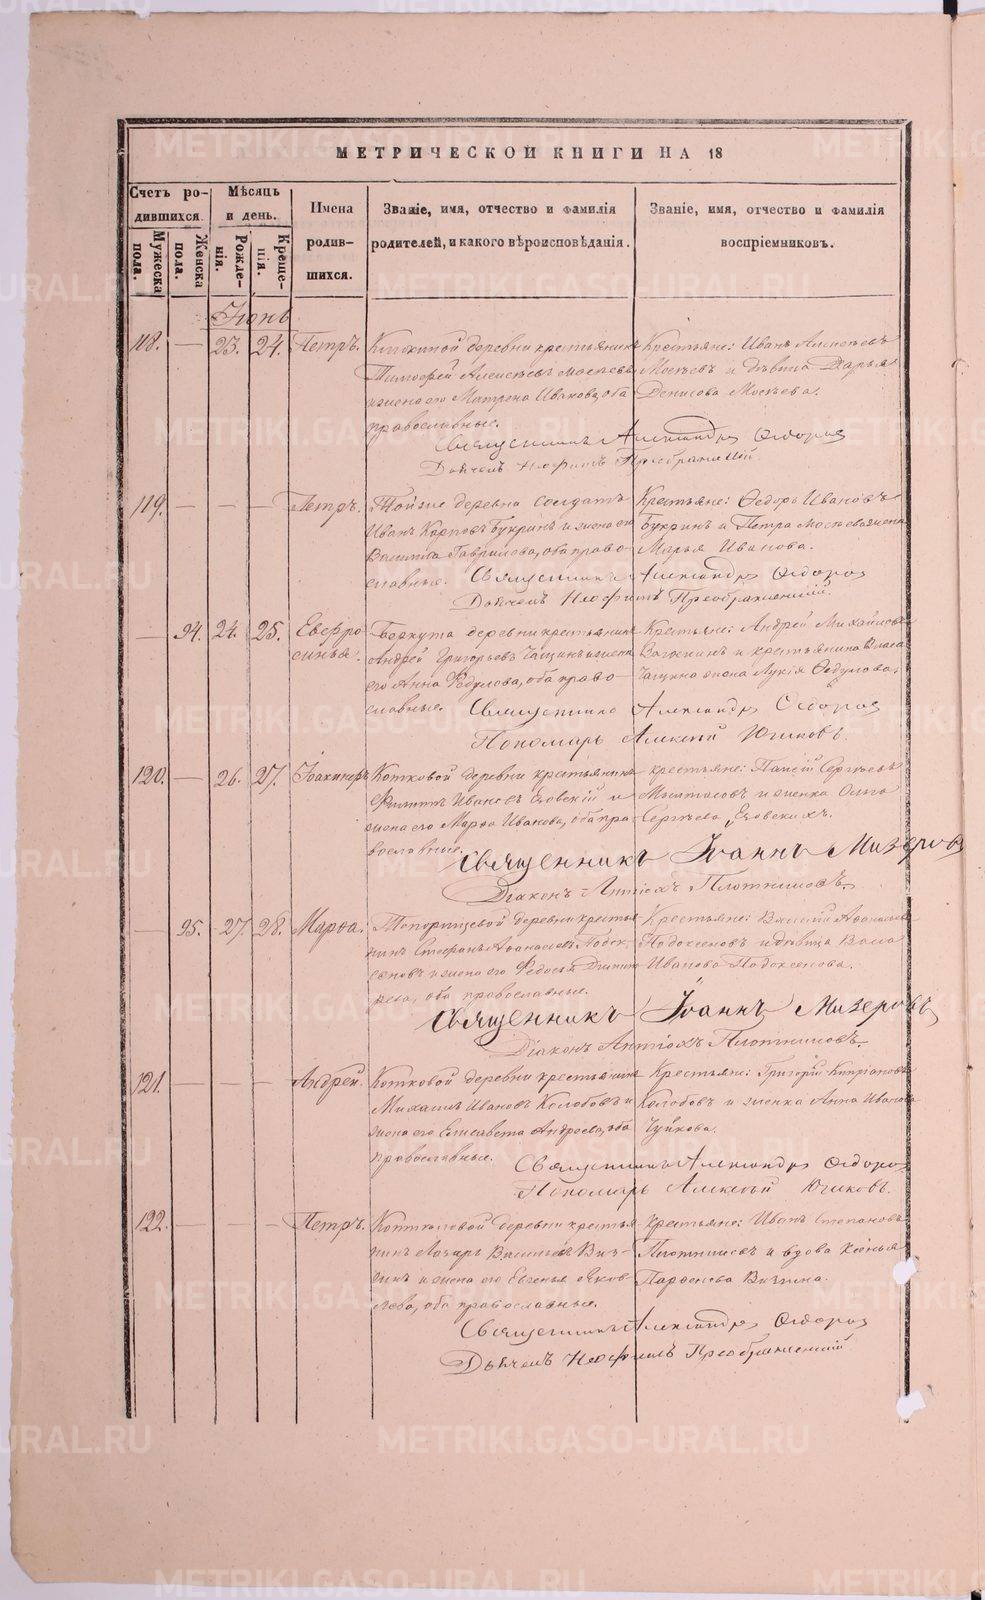 МЕТРИЧЕСКОЙ КНИГИ НА 18
Счетъ родившихся.
Мужеска пола.
Женска пола.
Мѣсяцъ и день.
Рожденія.
Крещенія.
Имена родившихся.
Званіе, имя, отчество и фамилія родителей, и какого вѣроисповѣданія.
Званіе, имя, отчество и фамилія воспріемниковъ.
Іюнь
118. — 23. 24. Петръ.
деревни крестьянинъ
Тимофей Алексѣевъ Москвевъ
и жена его Матрена Иванова, оба
православные.
Крестьяне: Иванъ Алексѣевъ
и дѣвица Дарья
Денисова
Священникъ Александръ Ѳедоров
Дьячекъ Неофитъ Преображенскій
119. — — — Петръ.
Тойже деревни солдатъ
Иванъ Карповъ Букринъ и жена его
Гаврилова, оба право-
славные.
Крестьяне: Ѳедоръ Ивановъ
Букринъ и Петра жена
Марья Иванова.
Священникъ Александръ Ѳедоров
Дьячекъ Неофитъ Преображенскій
— 94. 24. 25. Евфро-
синья.
Беркута деревни крестьянинъ
Андрей Григорьевъ Чащинъ и жена
его Анна Федулова, оба право-
славные.
Крестьяне: Андрей Михайловъ
и крестьянина Власа
Чащина жена Лукія Ѳедулова.
Священникъ Александръ Ѳедоров
Пономарь Алексѣй Югиковъ.
120. — 26. 27.
Котковой деревни крестьянинъ
Филиппъ Ивановъ Езовскій и
жена его Марѳа Иванова, оба пра-
вославные.
Крестьяне: Сергѣевъ
и женка Ольга
Сергѣева Езовскихъ.
Священникъ Іоаннъ Мизеровъ
Діаконъ Антіохъ Плотниковъ.
— 95. 27. 28. Марѳа.
Топорищевой деревни крестья-
нинъ Стефанъ Аѳанасьевъ Подок-
сеновъ и жена его Федосья Дмитрі-
ева, оба православные.
Крестьяне: Василій Аѳанасьевъ
Подоксеновъ и дѣвица
Иванова Подоксенова.
Священникъ Іоаннъ Мизеровъ
Діаконъ Антіохъ Плотниковъ.
121. — Андрей.
Котковой деревни крестьянинъ
Михаилъ Ивановъ Колобовъ и
жена его Елисавета Андреева, оба
православные.
Крестьяне: Григорій Кипріановъ
Колобовъ и женка Анна Иванова
Чуйкова.
Священникъ Александръ Ѳедоров
Пономарь Алексѣй Югиковъ.
122. — — — Петръ.
деревни крестья-
нинъ Лазарь Васильевъ Вяз-
гинъ и жена его Евгенья Яков-
лева, оба православные.
Крестьяне: Иванъ Степановъ
Плотниковъ и вдова Ксенья
Парѳенова
Священникъ Александръ Ѳедоров
Дьячекъ Неофитъ Преображенскій
METRIKI.GASO-URAL.RU